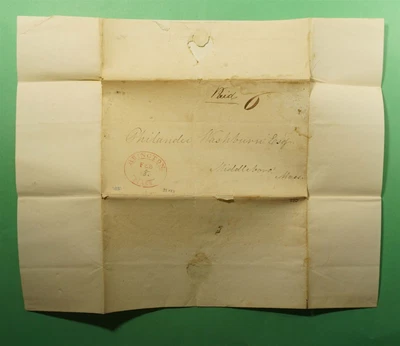 Paid 6
Philander Washburn Esq
Middleboro
Mass
FEB